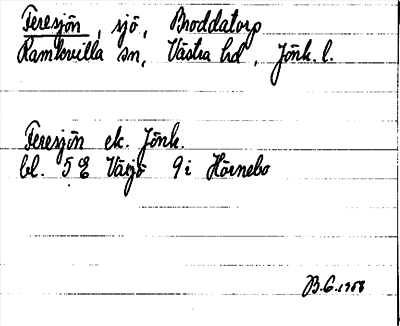 Feresjön, sjö, Broddatorp
Ramkvilla sn, Västra hd, Jönk. l.
Feresjön ek. Jönk.
bl. 5 E Växjö 9 i Hörnebo
B.G. 1958